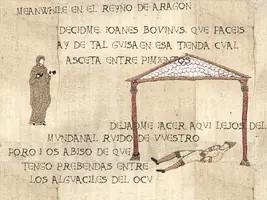 MEANWHILE EN EL REYNO DE ARAGON
DECIDME, JOANES BOVINUS, QUE FACEIS
AY DE TAL GUISA EN ESA TIENDA CVAL
ASCETA ENTRE PIMIENTOS
DEJADME JACER AQUI LEJOS DEL
MVNDANAL RVIDO DE VVESTRO
FORO I OS ABISO DE QVE
TENGO PREBENDAS ENTRE
LOS ALGVACILES DEL OCV